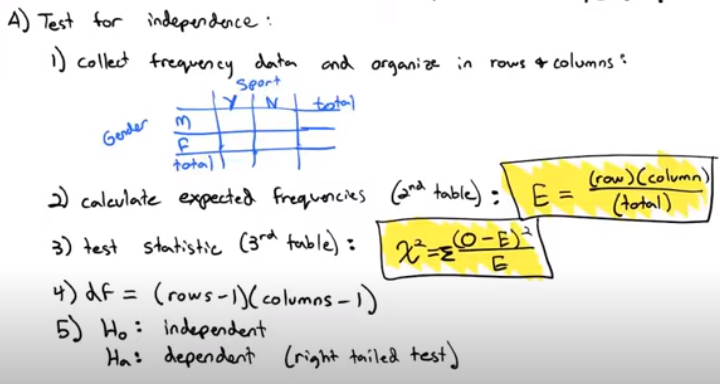 A) Test for independence :
1) collect frequency data and organize in rows & columns :
Sport
Y N total
Gender
M
F
total
2) calculate expected frequencies (2nd table) : E = (row)(column) / (total)
3) test statistic (3rd table) : χ² = Σ (O-E)² / E
4) df = (rows-1)(columns-1)
5) H₀ : independent
Ha : dependent (right tailed test)